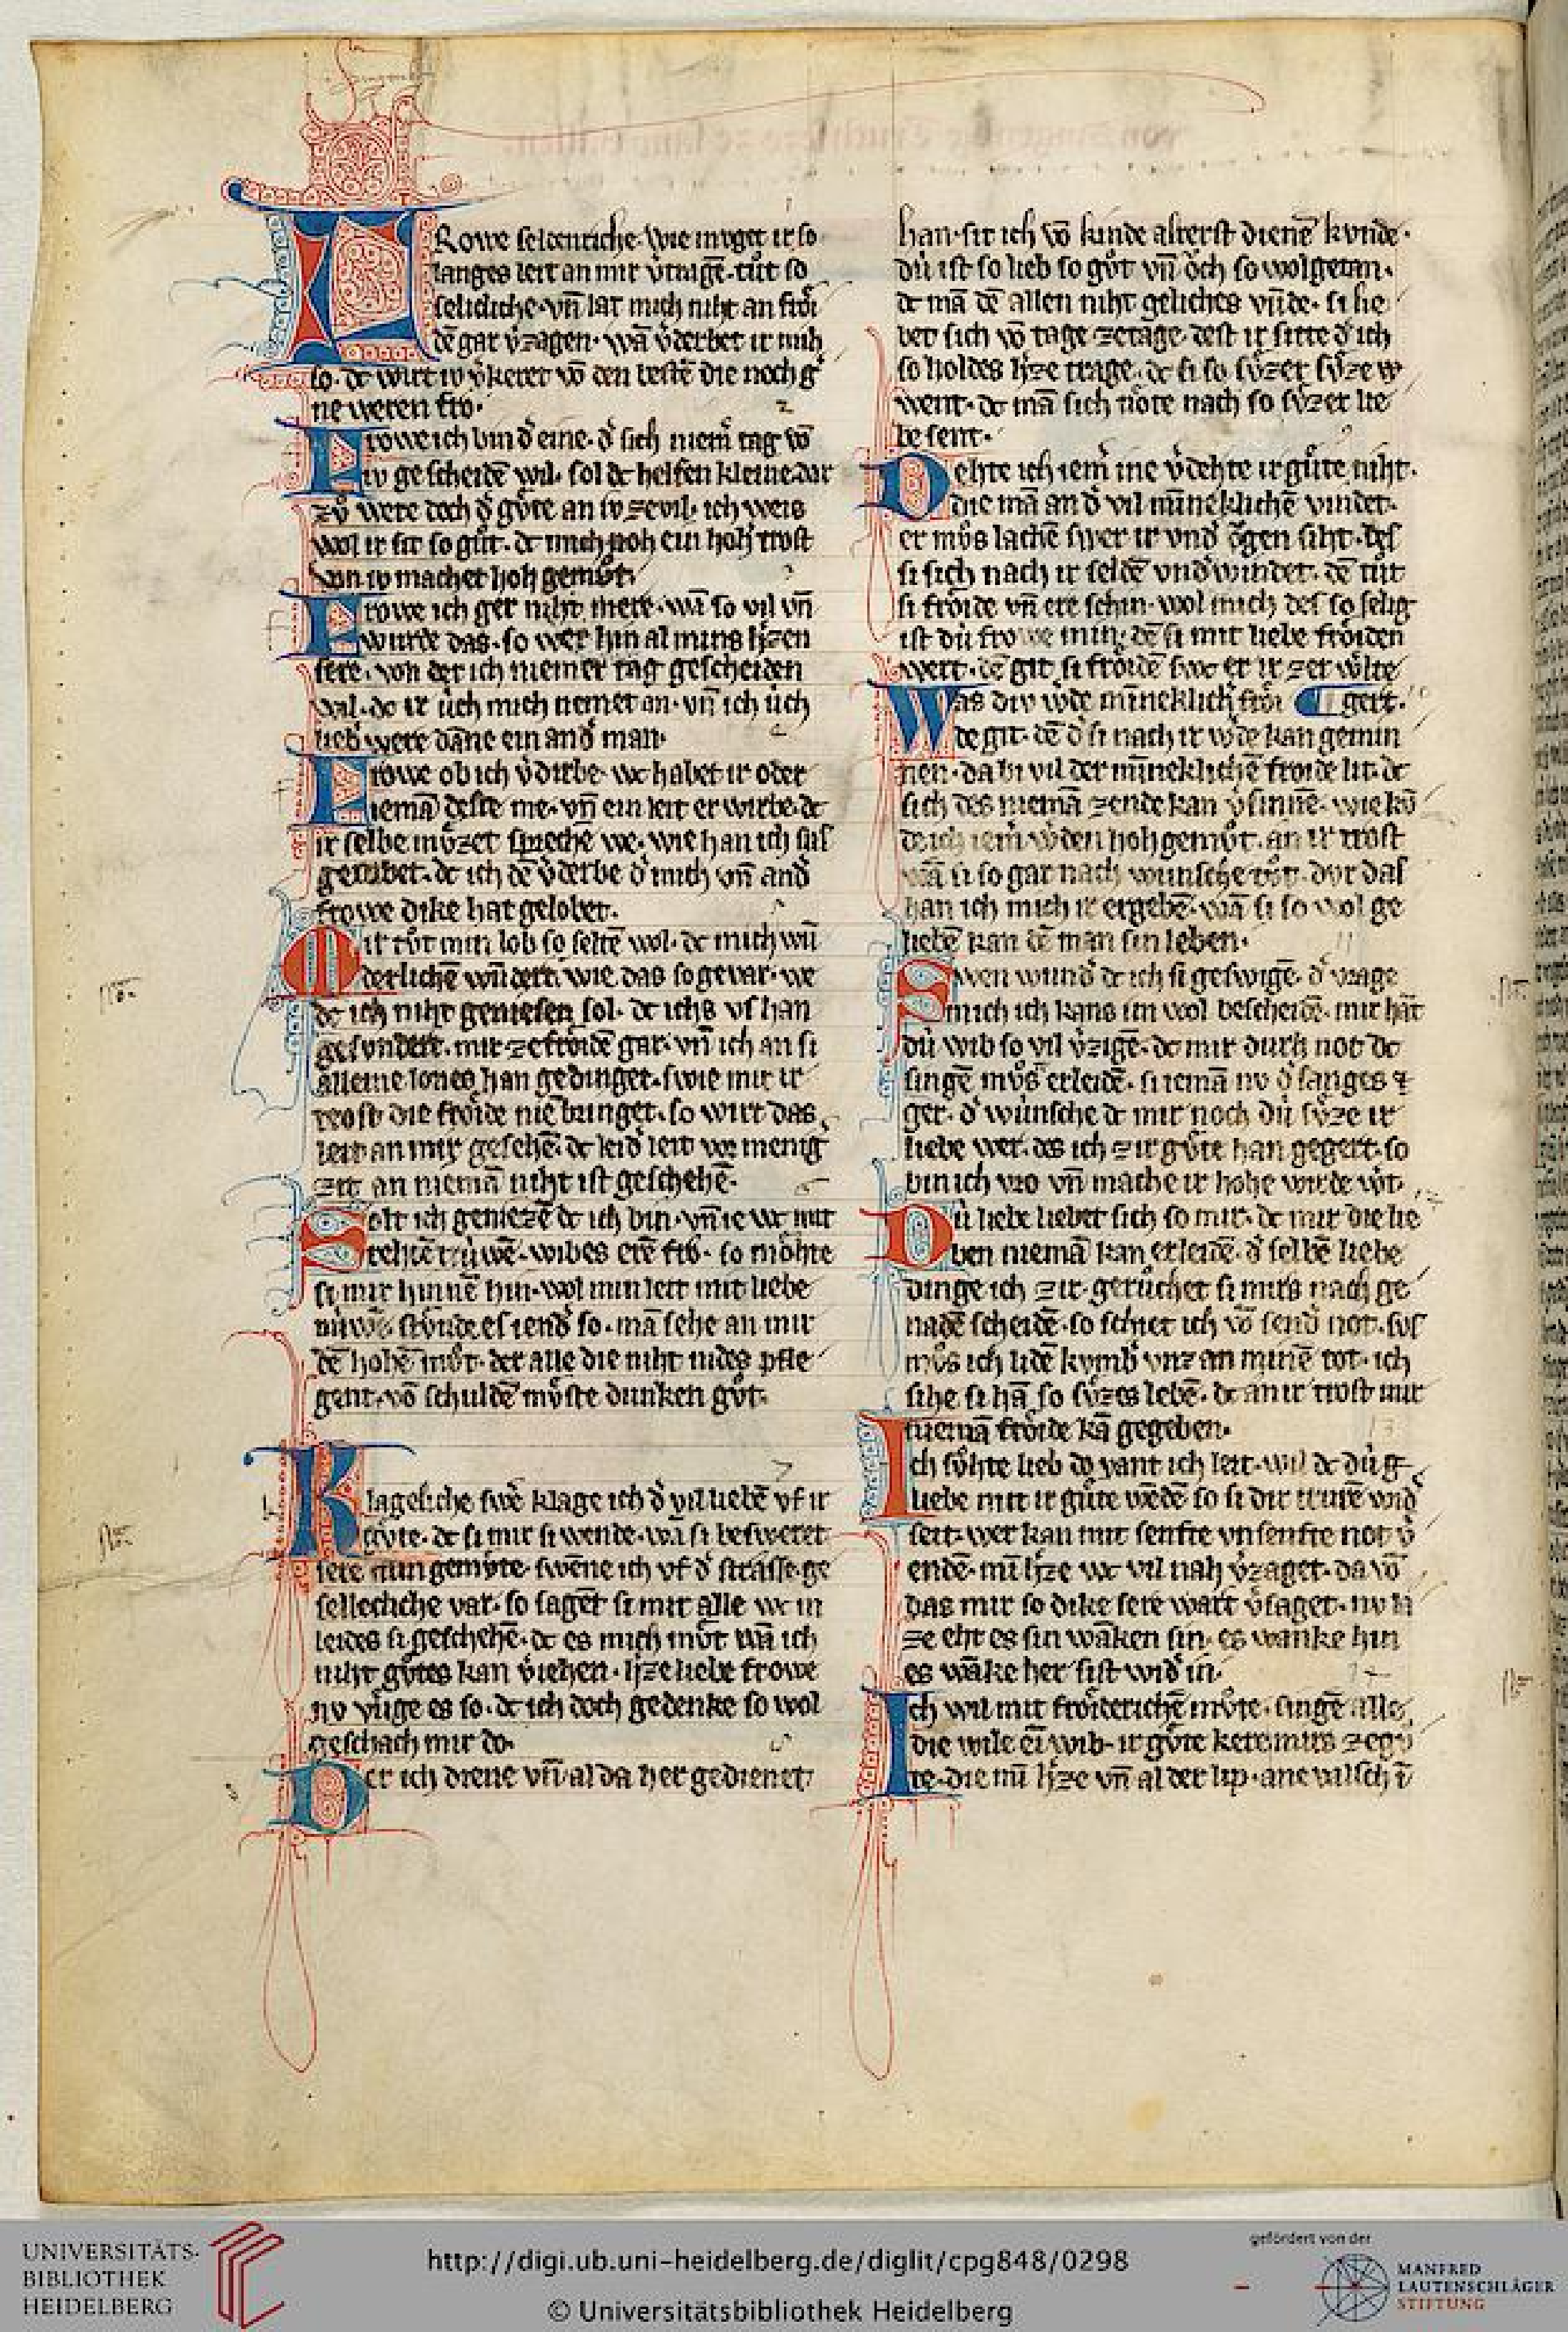 FRowe seldenriche. wie mvget ir so
langes leit an mir v̾tragē. tůt so
selicliche. vn̄ lat mich niht an frôi
dē gar v̾zagen. wā v̾derbet ir mih
so. dc wirt iv v̾keret vō den bestē die noch g
ne weren fro.
Frowe ich bin d̾ eine. d̾ sich niem̄ tag vō
iv gescheidē wil. sol dc helfen kleine. dar
zů were doch d̾ gůte an iv ze vil. ich weis
wol ir sit so gůt. dc mich noh ein hoh trost
von iv machet hoh gemůt.
Frowe ich ger niht mere. wā so vil vn̄
wurde das. so wer hin al mins h̾zen
sere. von der ich niemer tag gescheiden
wil. dc ir ůch mich nemet an. vn̄ ich ůch
lieb̾ were dāne ein and̾ man.
Frowe ob ich v̾dirbe. wc habet ir oder
iemā deste me. vn̄ ein leit erwirbe. dc
ir selbe můzet sprechē we. wie han ich sus
getobet. dc ich dē v̾derbe d̾ mich vn̄ and̾
frowe dike hat gelobet.
Mir tůt min lob so seltē wol. dc mich wū
derlichē wūdert. wie das so gevar. we
dc ich niht geniesen sol. dc ichs vs han
gesvndert. mir ze frôidē gar. vn̄ ich an si
alleine lones han gedinget. swie mir ir
trost die frôide nie bringet. so wirt das
leit an mir gesehē. dc leid̾ leit vor menig̾
zit an niemā niht ist geschehē.
Solt ich geniezē dc ich bin. vn̄ ie wc mit
rehtē trúwē. wibes erē fro. so môhte
si mir hinnē hin. wol min leit mit liebe
núwē. stůnde es iend̾ so. mā sehe an mir
dē hohē můt. der alle die niht nides pfle
gent. vō schuldē můste dunken gůt.
Klageliche swē klage ich d̾ vil liebē vf ir
gůte. dc si mir si wende. wā si besweret
sere min gemůte. swēne ich vf d̾ strasse ge
sellecliche var. so sagēt si mir alle wc in
leides si geschehē. dc es mich můt wā ich
niht gůtes kan v̾iehen. h̾ze liebe frowe
nv vůge es so. dc ich doch gedenke so wol
geschach mir do.
Der ich diene vn̄ al da her gedienet
han. sit ich vō kinde alrerst dienē kvnde.
dú ist so lieb so gůt vn̄ ôch so wolgetan.
dc mā dē allen niht geliches vūde. si lie
bet sich vō tage ze tage. dest ir sitte d̾ ich
so holdes h̾ze trage. dc si so sůzer sůze w
went. dc mā sich nôte nach so sůzer lie
be sent.
Dehte ich iem̄ me v̾dehte ir gůte niht.
die mā an d̾ vil mīneklichē vindet.
er můs lachē swer ir vnd̾ ôgen siht. des
si sich nach ir seldē vnd̾windet. dē tůt
si frôide vn̄ ere schin. wol mich des so selig
ist dú frowe min. dē si mit liebe frôiden
wert. dē git si frôidē swc er ir zer w̾lte
Was div w̾de mīneklich frôi ¶ gert.
de git. dē d̾ si nach ir w̾de kan gemin
nen. da bi vil der mīneklichē froide lit. dc
sich des niemā ze ende kan v̾sinnē. wie kō
de ich iem̄ w̾den hohgemůt. an ir trost
wā si so gar nach wunsche tůt. dvr das
han ich mich ir ergebē. wā si so wol ge
liebē kan dē man sin leben.
Swen wund̾ dc ich si geswigē. d̾ vrage
mich ich kans im wol bescheidē. mir hāt
dú wib so vil v̾zigē. dc mir durh not dc
singē můs erleidē. si iemā nv d̾ sanges
ger. d̾ wúnsche dc mir noch dú sůze ir
liebe wer. des ich zir gůte han gegert. so
bin ich vro vn̄ mache ir hohe wirde w̾t.
Dú liebe liebet sich so mir. dc mir die lie
ben niemā kan erleidē. d̾ selbē liebe
dinge ich zir. gerůchet si mirs nach ge
nadē scheidē. so schiet ich vō send̾ not. sus
můs ich lidē kvmb̾ vnz an minē tot. ich
sihe si hā so sůzes lebē. dc an ir trost mir
niemā frôide kā gegeben.
Ich sůhte lieb do vant ich leit. wil dc dú g
liebe mit ir gůte wēdē. so si dir trurē wid̾
seit. wer kan mir senfte vnsenfte not v̾
endē. mī h̾ze wc vil nah v̾zaget. da vō
das mir so dike sere wart v̾saget. nv h
ze eht es sin wāken sin. es wanke hin
es wāke her sist wid̾ in.
Ich wil mit frôiderichē můte. singē alle
die wile eī wib. ir gůte kere mirs ze gů
te. die mī h̾ze vn̄ al der lip. ane valsch ī
UNIVERSITÄTS-
BIBLIOTHEK
HEIDELBERG
http://digi.ub.uni-heidelberg.de/diglit/cpg848/0298
© Universitätsbibliothek Heidelberg
gefördert von der
MANFRED
LAUTENSCHLÄGER
STIFTUNG